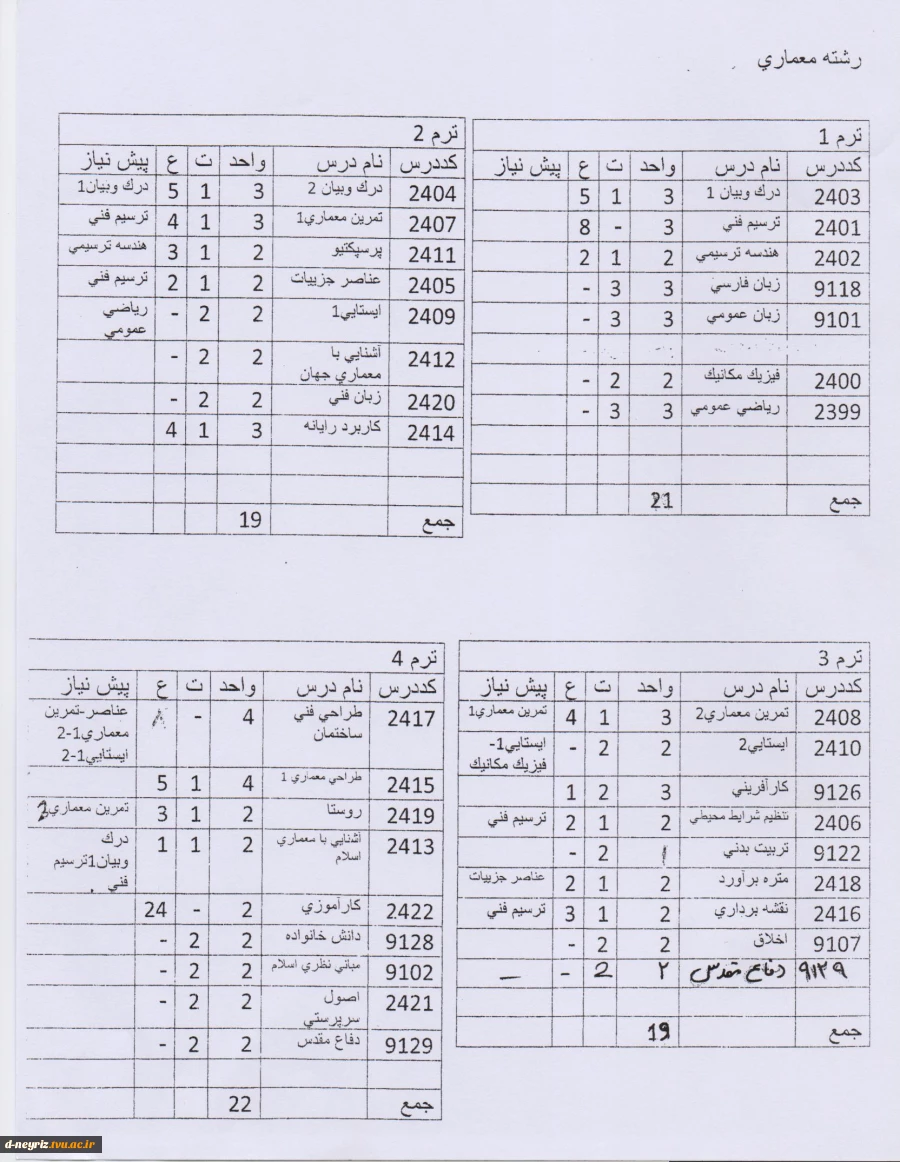 رشته معماري
ترم 1
كددرس نام درس واحد ت ع پيش نياز
2403 درك وبيان 1 3 1 5
2401 ترسيم فني 3 - 8
2402 هندسه ترسيمي 2 1 2
9118 زبان فارسي 3 3 -
9101 زبان عمومي 3 3 -
2400 فيزيك مكانيك 2 2 -
2399 رياضي عمومي 3 3 -
جمع 21
ترم 2
كددرس نام درس واحد ت ع پيش نياز
2404 درك وبيان 2 3 1 5 درك وبيان1
2407 تمرين معماري1 3 1 4 ترسيم فني
2411 پرسپكتيو 2 1 3 هندسه ترسيمي
2405 عناصر جزييات 2 1 2 ترسيم فني
2409 ايستايي1 2 2 - رياضي
عمومي
2412 آشنايي با 2 2 -
معماري جهان
2420 زبان فني 2 2 -
2414 كاربرد رايانه 3 1 4
جمع 19
ترم 3
كددرس نام درس واحد ت ع پيش نياز
2408 تمرين معماري2 3 1 4 تمرين معماري1
2410 ايستايي2 2 2 - ايستايي1-
فيزيك مكانيك
9126 كارآفريني 3 2 1
2406 تنظيم شرايط محيطي 2 1 2 ترسيم فني
9122 تربيت بدني ١ 2 -
2418 متره برآورد 2 1 2 عناصر جزييات
2416 نقشه برداري 2 1 3 ترسيم فني
9107 اخلاق 2 2 -
٩١٢٩ دفاع مقدس ٢ 2 - –
جمع 19
ترم 4
كددرس نام درس واحد ت ع پيش نياز
2417 طراحي فني 4 - ٨ عناصر-تمرين
ساختمان معماري1-2
ايستايي1-2
2415 طراحي معماري 1 4 1 5
2419 روستا 2 1 3 تمرين معماري2
2413 آشنايي با معماري 2 1 1 درك
اسلام وبيان1ترسيم
فني
2422 كارآموزي 2 - 24
9128 دانش خانواده 2 2 -
9102 مباني نظري اسلام 2 2 -
2421 اصول 2 2 -
سرپرستي
9129 دفاع مقدس 2 2 -
جمع 22
d-neyriz.tvu.ac.ir